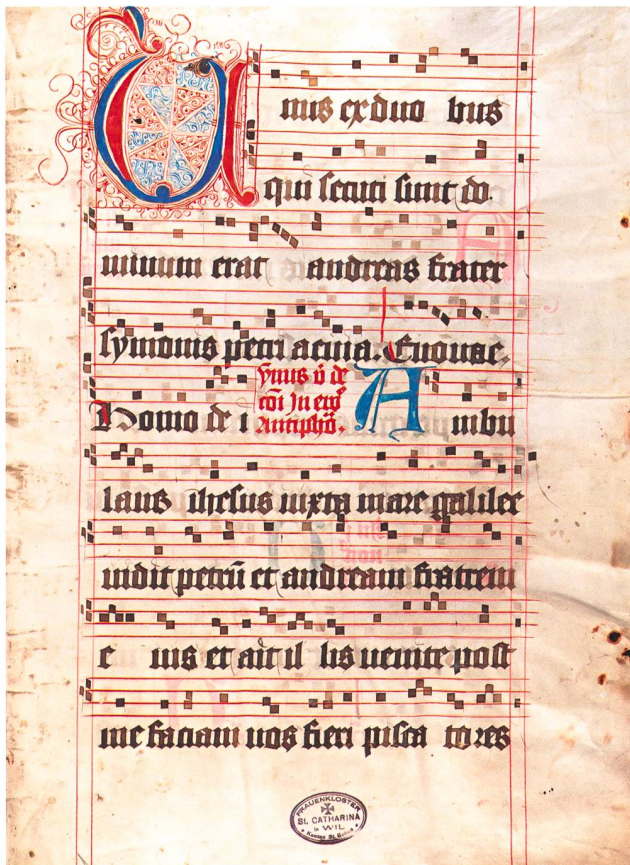 Unus ex duo bus
qui secuti sunt do
minum erat andreas frater
symonis petri aeuia. Euouae.
Homo de i
Ymnus v̄ de
cōi Jn euō
Antiphō.
Ambu
lans ihesus iuxta mare galilee
uidit petrū et andream fratrem
e ius et ait il lis uenite post
me faciam uos fieri pisca tores
FRAUENKLOSTER
St. CATHARINA
in WIL
Kanton St. Gallen